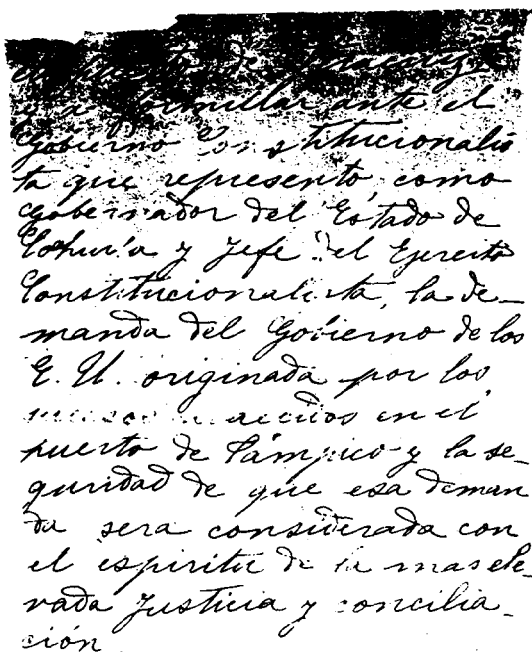 el puerto de Veracruz
y a formular ante el
Gobierno Constitucionalis
ta que represento como
Gobernador del Estado de
Cohuila y Jefe del Ejercito
Constitucionalista, la de_
manda del Gobierno de los
E. U. originada por los
sucesos acaecidos en el
puerto de Támpico y la se_
guridad de que esa deman
da sera considerada con
el espiritu de la mas ele_
vada Justicia y concilia_
ción